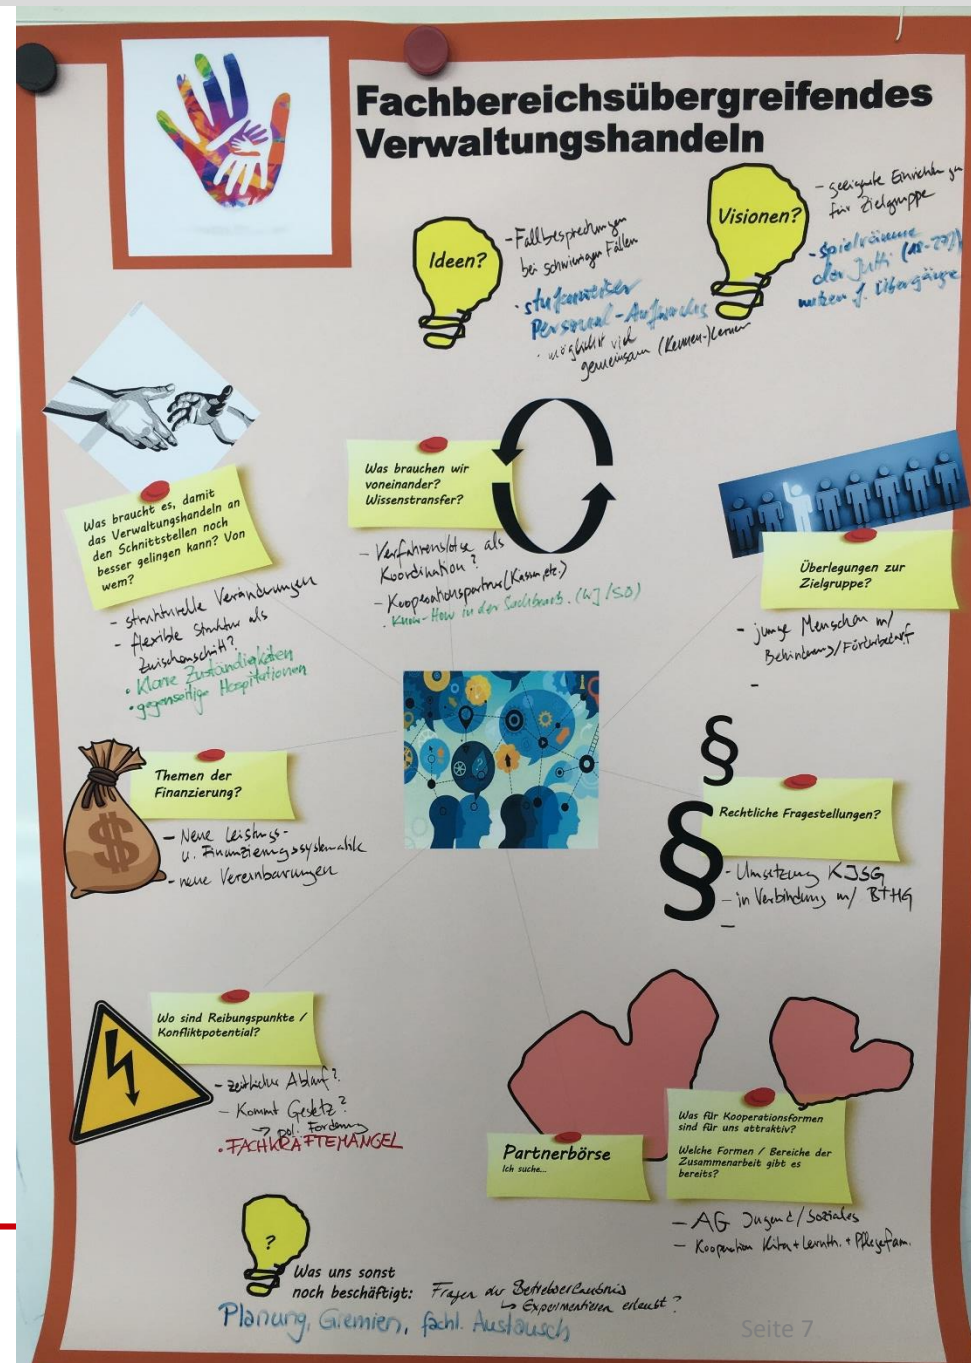 Fachbereichsübergreifendes
Verwaltungshandeln
Ideen?
- Fallbesprechungen
bei schwierigen Fällen
· stufenweiser
Personal-Aufwuchs
· möglichst viel
gemeinsam (Kennen-)lernen
Visionen?
- geeignete Einrichtungen
für Zielgruppe
- Spielräume
der JuHi (18-27J)
nutzen f. Übergänge
Was braucht es, damit
das Verwaltungshandeln an
den Schnittstellen noch
besser gelingen kann? Von
wem?
- strukturelle Veränderungen
- flexible Struktur als
Zwischenschritt?
· Klare Zuständigkeiten
· gegenseitige Hospitationen
Was brauchen wir
voneinander?
Wissenstransfer?
- Verfahrenslotse als
Koordination?
- Kooperationspartner (Kassen, etc.)
· Know-How in der Sachbearb. (WJ/SD)
Überlegungen zur
Zielgruppe?
- junge Menschen m/
Behinderung/Förderbedarf
-
Themen der
Finanzierung?
- Neue Leistungs-
u. Finanzierungssystematik
- neue Vereinbarungen
§
§
Rechtliche Fragestellungen?
- Umsetzung KJSG
- in Verbindung m/ BTHG
-
Wo sind Reibungspunkte /
Konfliktpotential?
- zeitlicher Ablauf?
- Kommt Gesetz?
→ pol. Forderung
· FACHKRÄFTEMANGEL
Partnerbörse
Ich suche...
Was für Kooperationsformen
sind für uns attraktiv?
Welche Formen / Bereiche der
Zusammenarbeit gibt es
bereits?
- AG Jugend/Soziales
- Kooperation Kita + Lernth. + Pflegefam.
?
Was uns sonst
noch beschäftigt: Fragen der Betriebserlaubnis
↳ Experimentieren erlaubt?
Planung, Gremien, fachl. Austausch
Seite 7